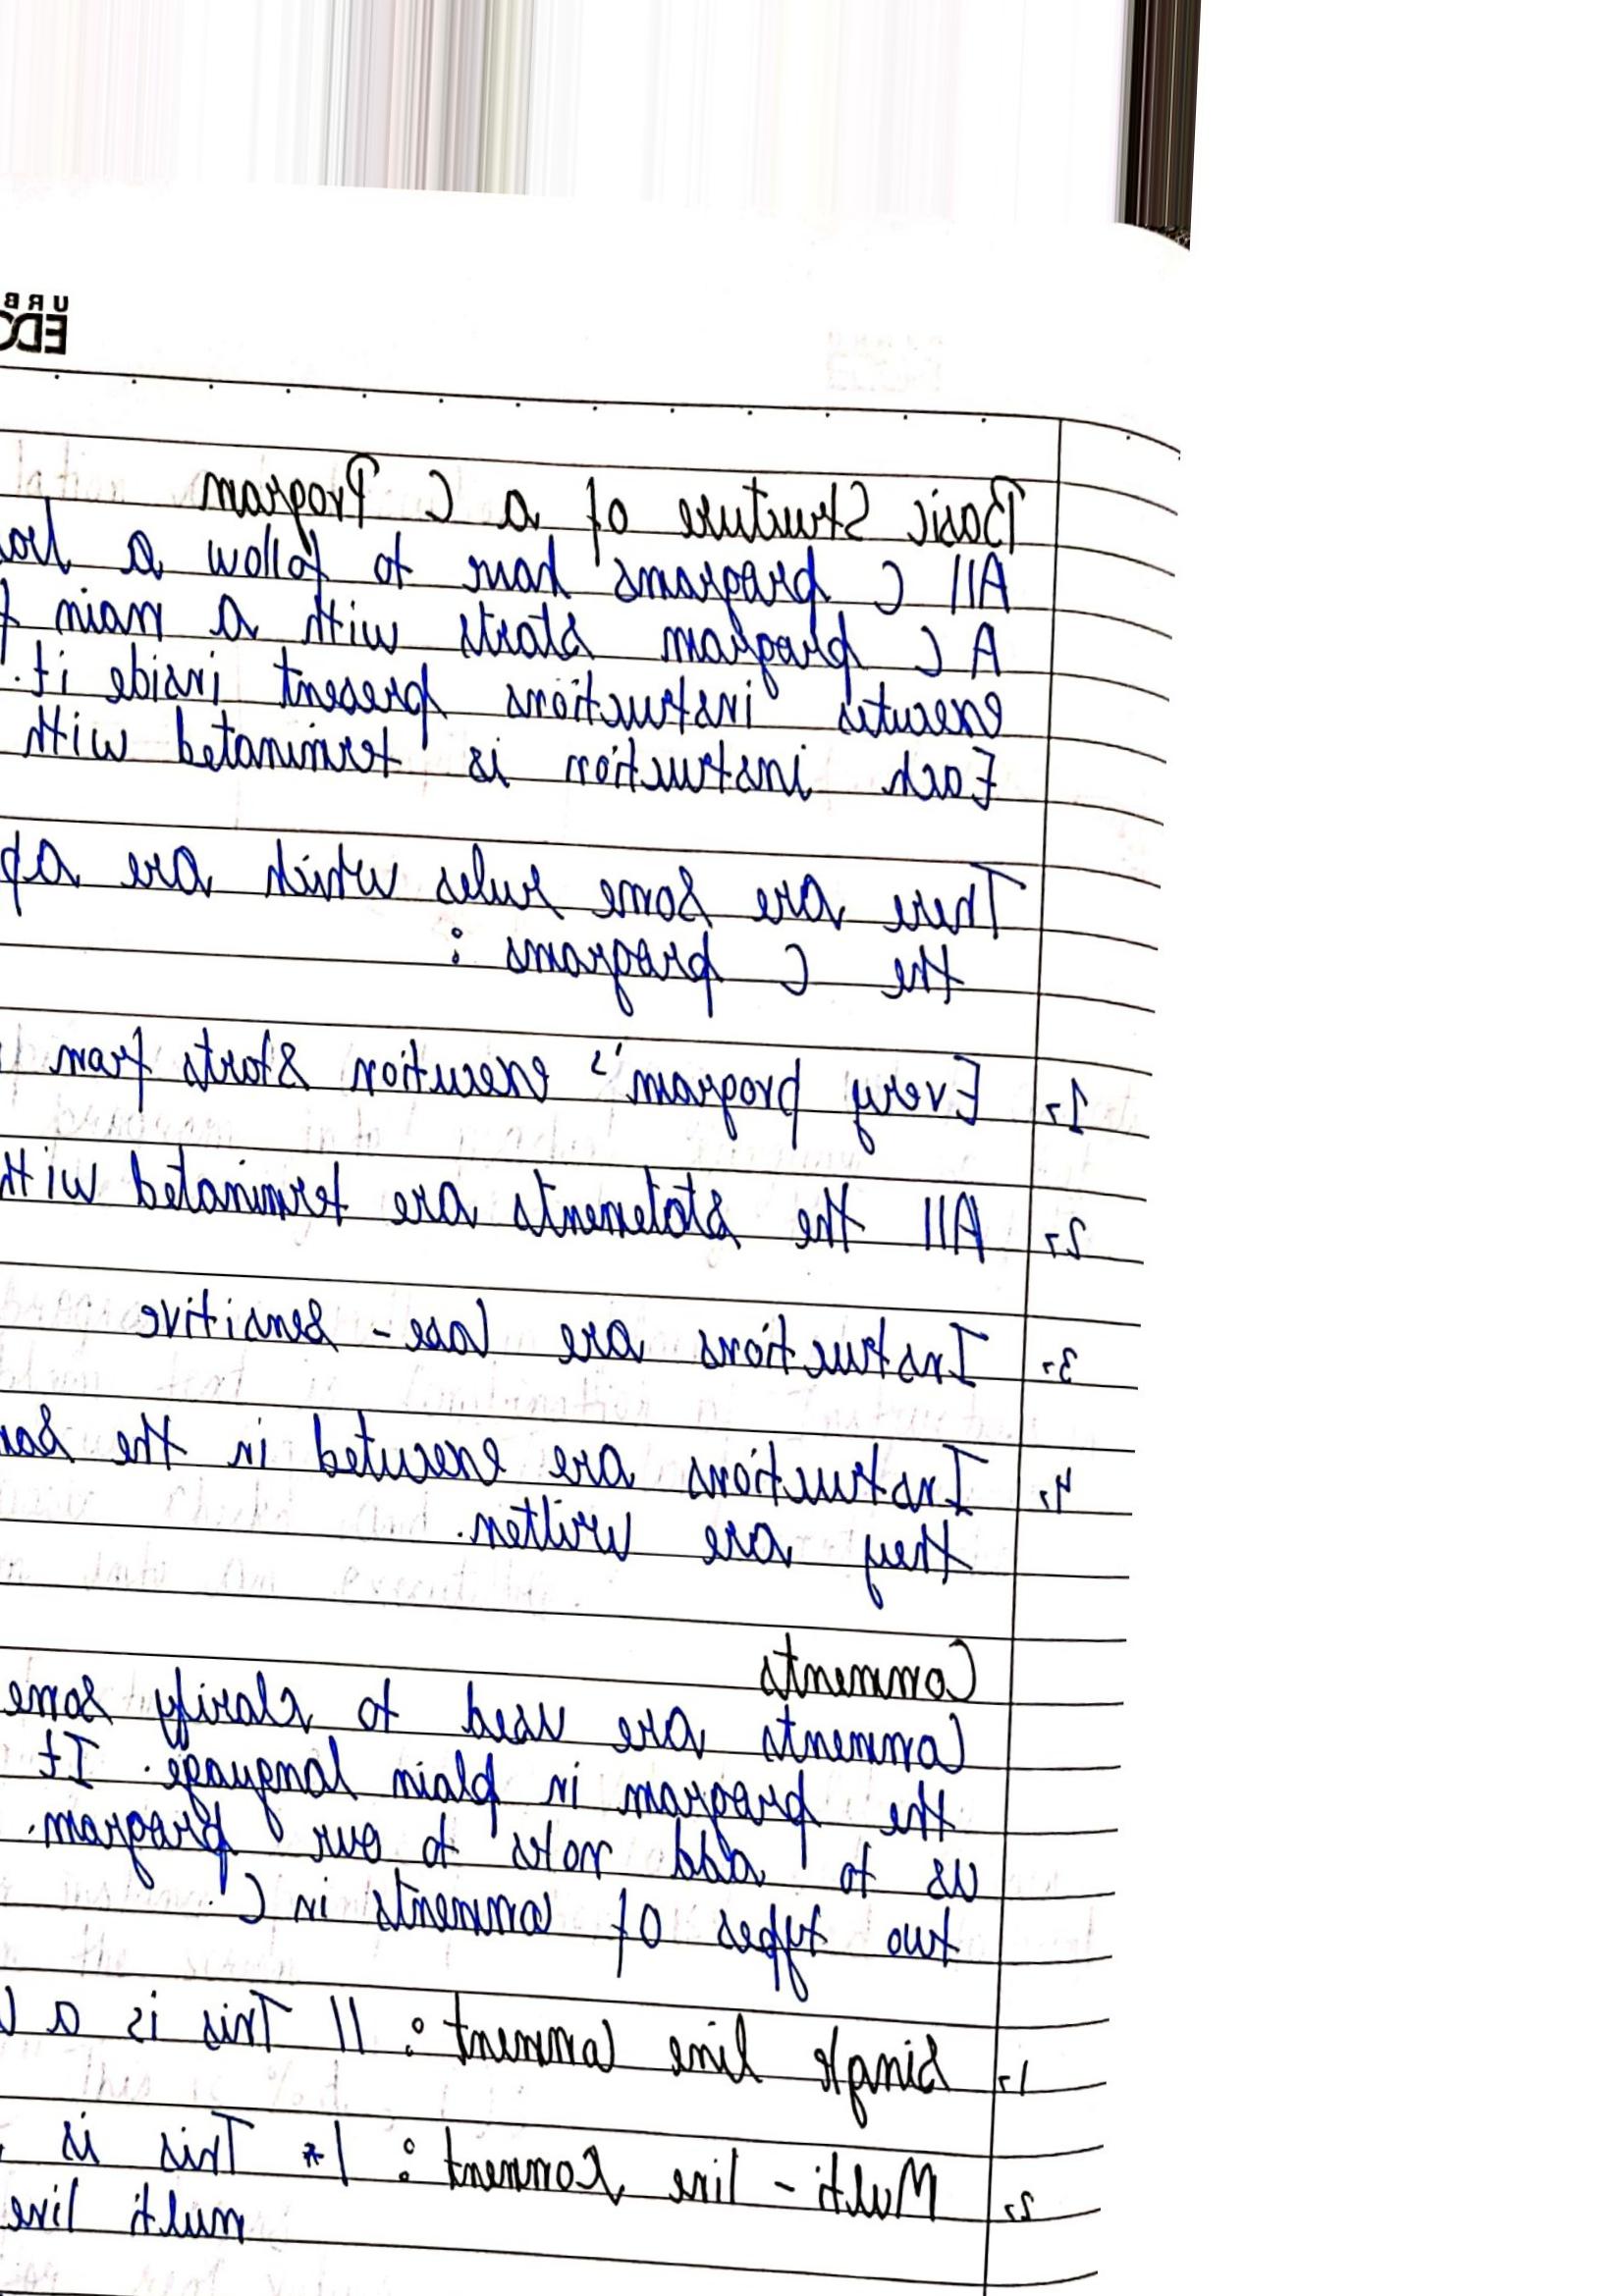 URB
EDC
Basic Structure of a C Program
All C programs have to follow a
A C program starts with a main
executes instructions present inside it.
Each instruction is terminated with
There are some rules which are ap
the C programs :
1. Every program's execution starts from
2. All the statements are terminated with
3. Instructions are Case - sensitive
4. Instructions are executed in the sa
they are written.
Comments
Comments are used to clarify some
the program in plain language. It
us to add notes to our program.
two types of comments in C.
1. Single line Comment : // This is a C
2. Multi - line Comment : /* This is
multi line